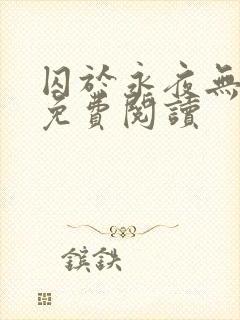 囚於永夜無
免費閱讀
鎴鉄